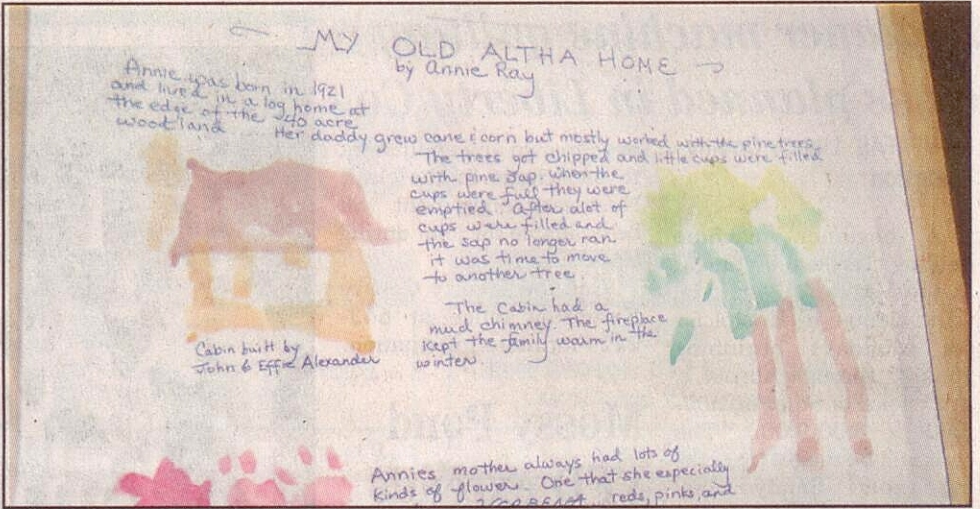 MY OLD ALTHA HOME
by Annie Ray
Annie was born in 1921
and lived in a log home at
the edge of the 40 acre
woodland .... Her daddy grew cane & corn but mostly worked with the pine trees.
The trees got chipped and little cups were filled
with pine sap. When the
cups were full they were
emptied. After alot of
cups were filled and
the sap no longer ran
it was time to move
to another tree.
The Cabin had a
mud chimney. The fireplace
kept the family warm in the
winter.
Cabin built by
John & Effie Alexander
Annies mother always had lots of
kinds of flower. One that she especially
reds, pinks, and